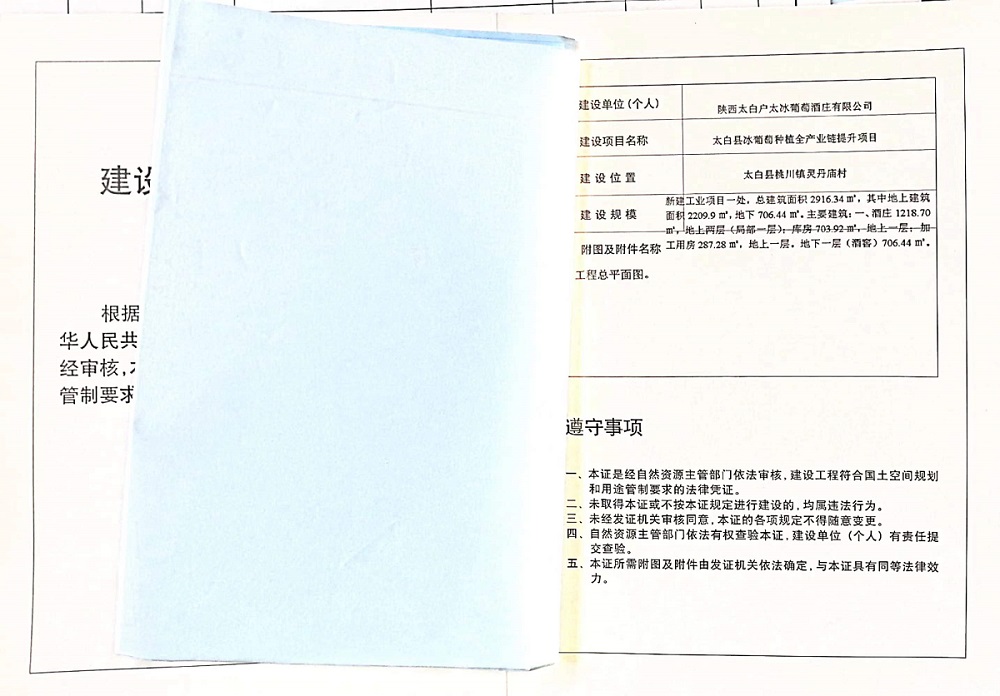 建设
根据
华人民共
经审核,
管制要求
建设单位(个人) 陕西太白户太冰葡萄酒庄有限公司
建设项目名称 太白县冰葡萄种植全产业链提升项目
建设位置 太白县桃川镇灵丹庙村
建设规模
新建工业项目一处，总建筑面积 2916.34 ㎡，其中地上建筑
面积 2209.9 ㎡，地下 706.44 ㎡。主要建筑：一、酒庄 1218.70
㎡，地上两层（局部一层）；库房 703.92 ㎡，地上一层；加
工用房 287.28 ㎡，地上一层。地下一层（酒窖）706.44 ㎡。
附图及附件名称
工程总平面图。
遵守事项
一、本证是经自然资源主管部门依法审核,建设工程符合国土空间规划
和用途管制要求的法律凭证。
二、未取得本证或不按本证规定进行建设的,均属违法行为。
三、未经发证机关审核同意,本证的各项规定不得随意变更。
四、自然资源主管部门依法有权查验本证,建设单位（个人）有责任提
交查验。
五、本证所需附图及附件由发证机关依法确定,与本证具有同等法律效
力。